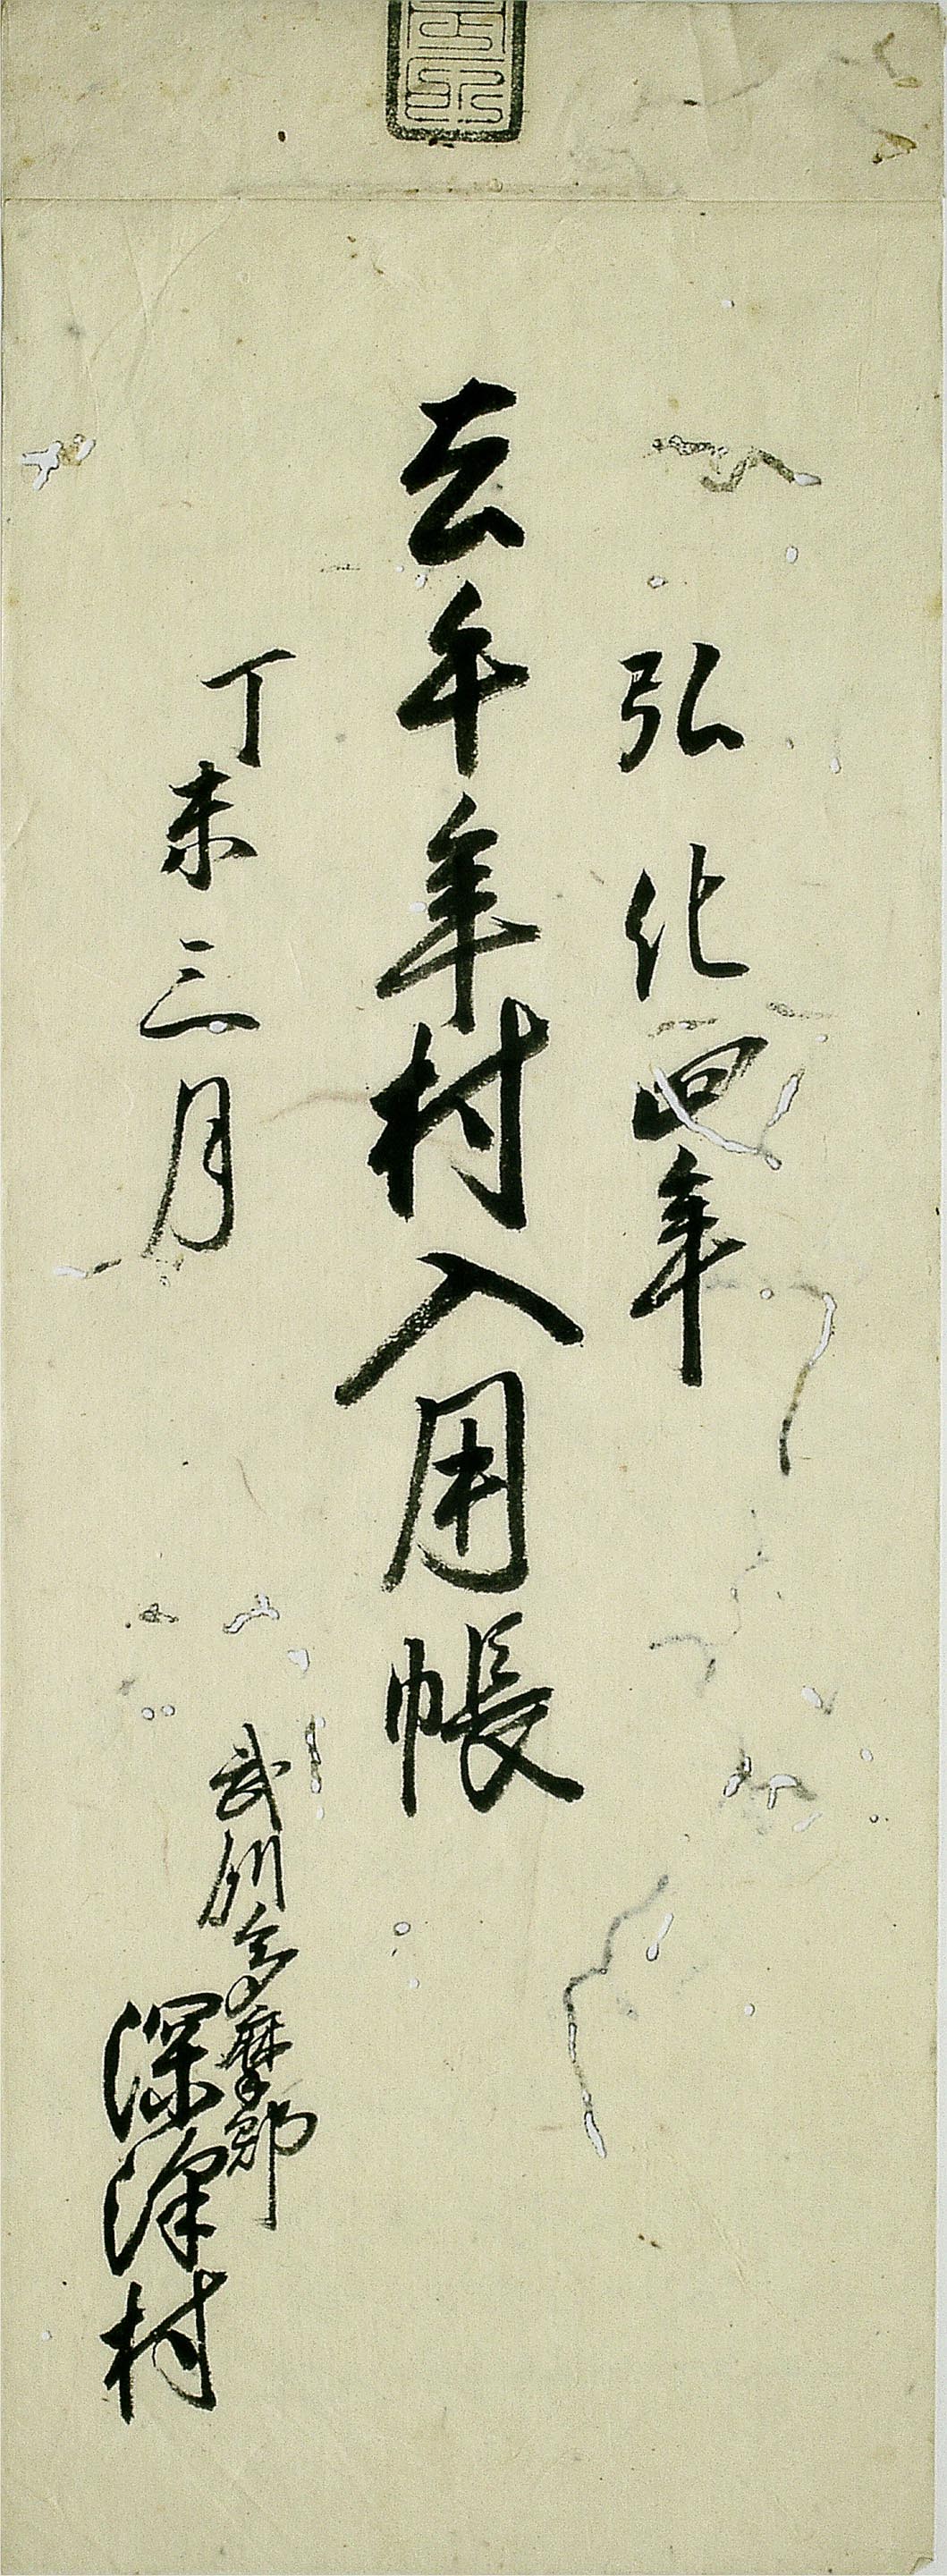 弘化四年
去午年村入用帳
丁未三月
武州多摩郡
深澤村